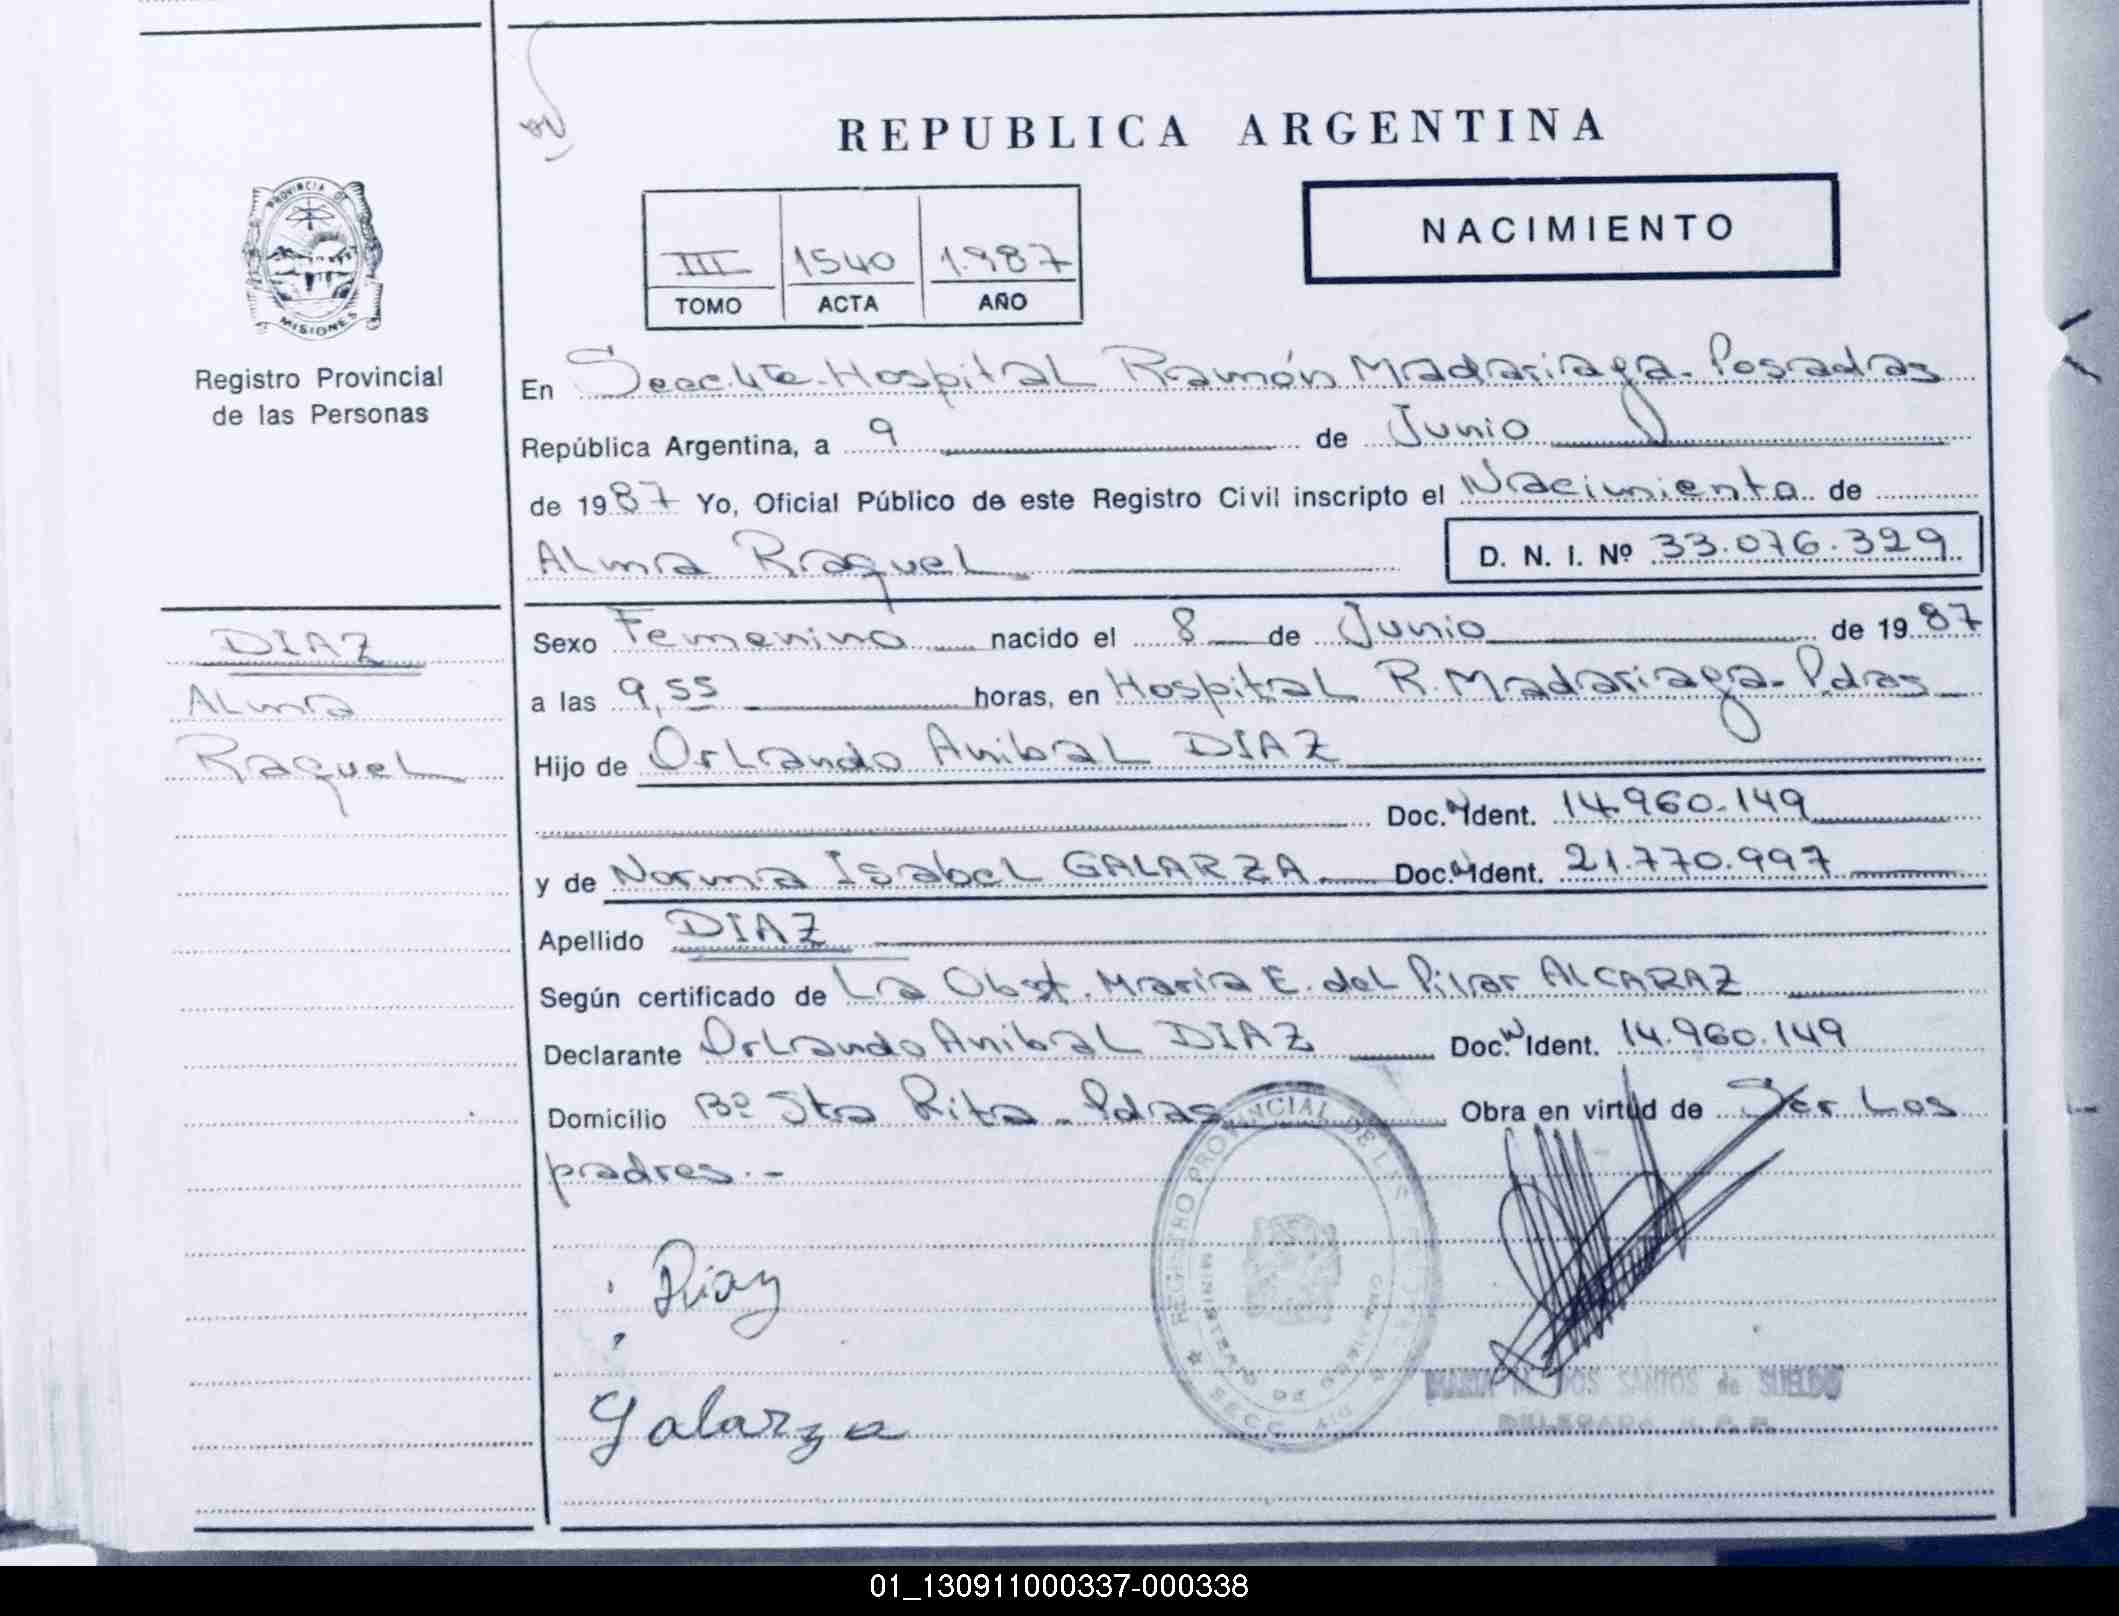 REPUBLICA ARGENTINA
NACIMIENTO
III 1540 1.987
TOMO ACTA AÑO
PROVINCIA DE
MISIONES
Registro Provincial
de las Personas
En Secc. 4ta. Hospital Ramón Madariaga - Posadas
República Argentina, a 9 de Junio
de 1987 Yo, Oficial Público de este Registro Civil inscripto el Nacimiento de
Alma Raquel D. N. I. Nº 33.076.329
DIAZ
Alma
Raquel
Sexo Femenino nacido el 8 de Junio de 1987
a las 9,55 horas, en Hospital R. Madariaga - Pdas
Hijo de Orlando Anibal DIAZ
Doc. Ident. 14.960.149
y de Norma Isabel GALARZA Doc. Ident. 21.770.997
Apellido DIAZ
Según certificado de La Obst. Maria E. del Pilar ALCARAZ
Declarante Orlando Anibal DIAZ Doc. Ident. 14.960.149
Domicilio Bº Sta Rita - Pdas Obra en virtud de Ser Los
padres.-
REGISTRO PROVINCIAL DE
MINISTERIO DE GOBIERNO
SECC.
Diaz
Galarza
MARIA M. DOS SANTOS de SUELDO
DELEGADA R. P. P.
01_130911000337-000338